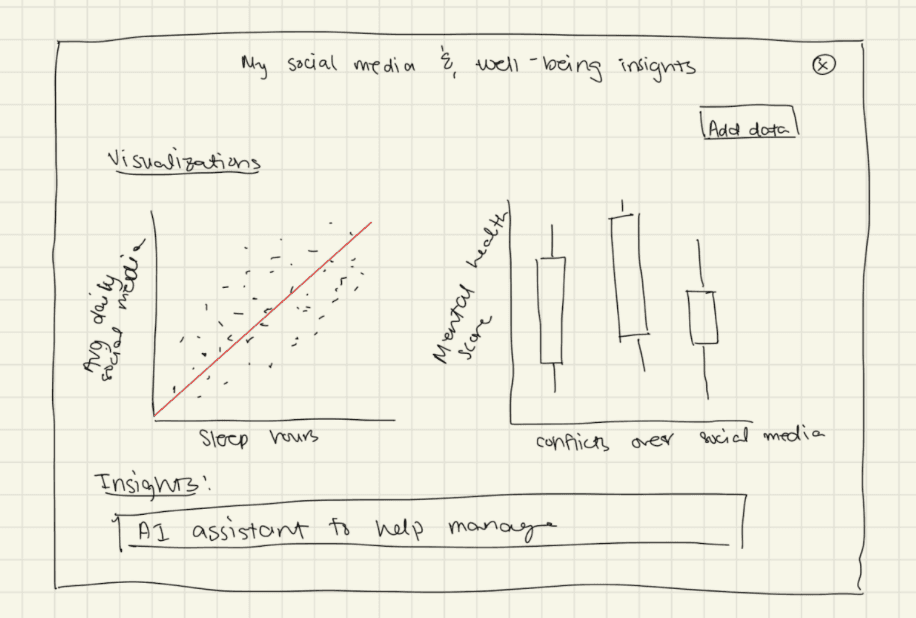 My social media & well-being insights
Add data
Visualizations
Avg daily
social media
Sleep hours
Mental health
score
conflicts over social media
Insights:
AI assistant to help manage